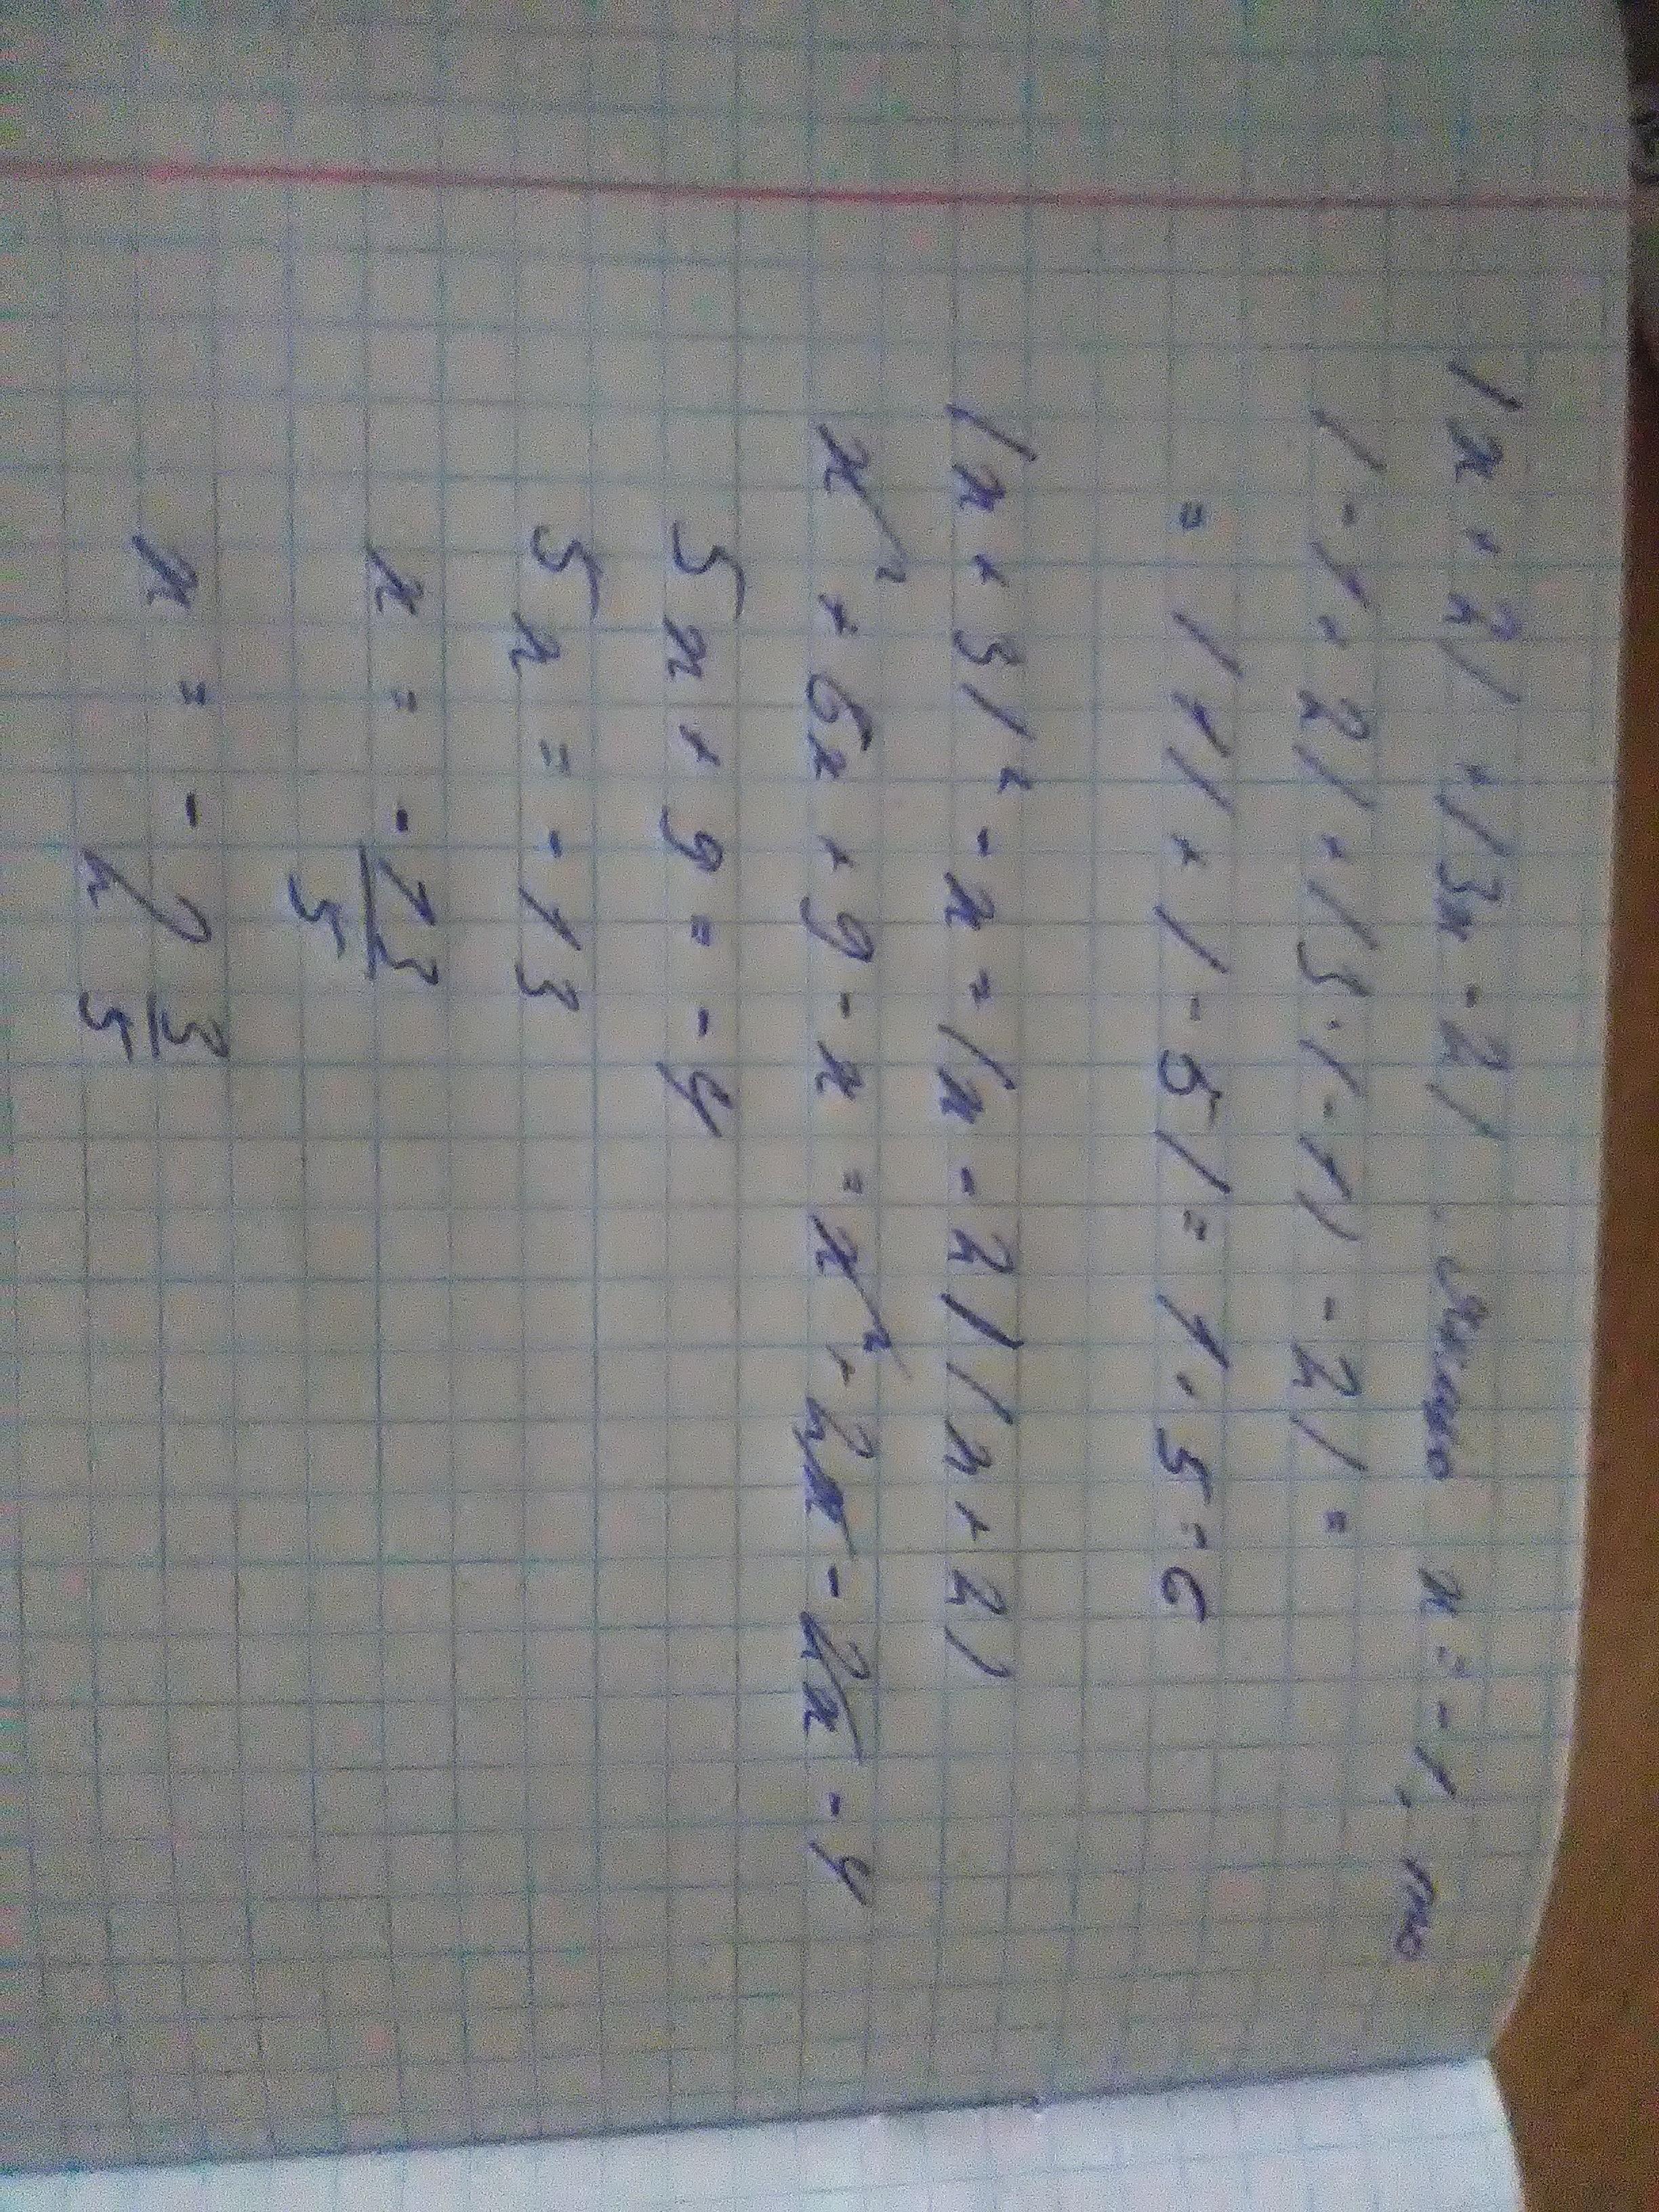 |x + 2| + |3x - 2| якщо x = -1, то
|-1 + 2| + |3·(-1) - 2| =
= |1| + |-5| = 1 + 5 = 6
(x + 3)² - x = (x - 2)(x + 2)
x² + 6x + 9 - x = x² + 2x - 2x - 4
5x + 9 = -4
5x = -13
x = -13/5
x = -2 3/5